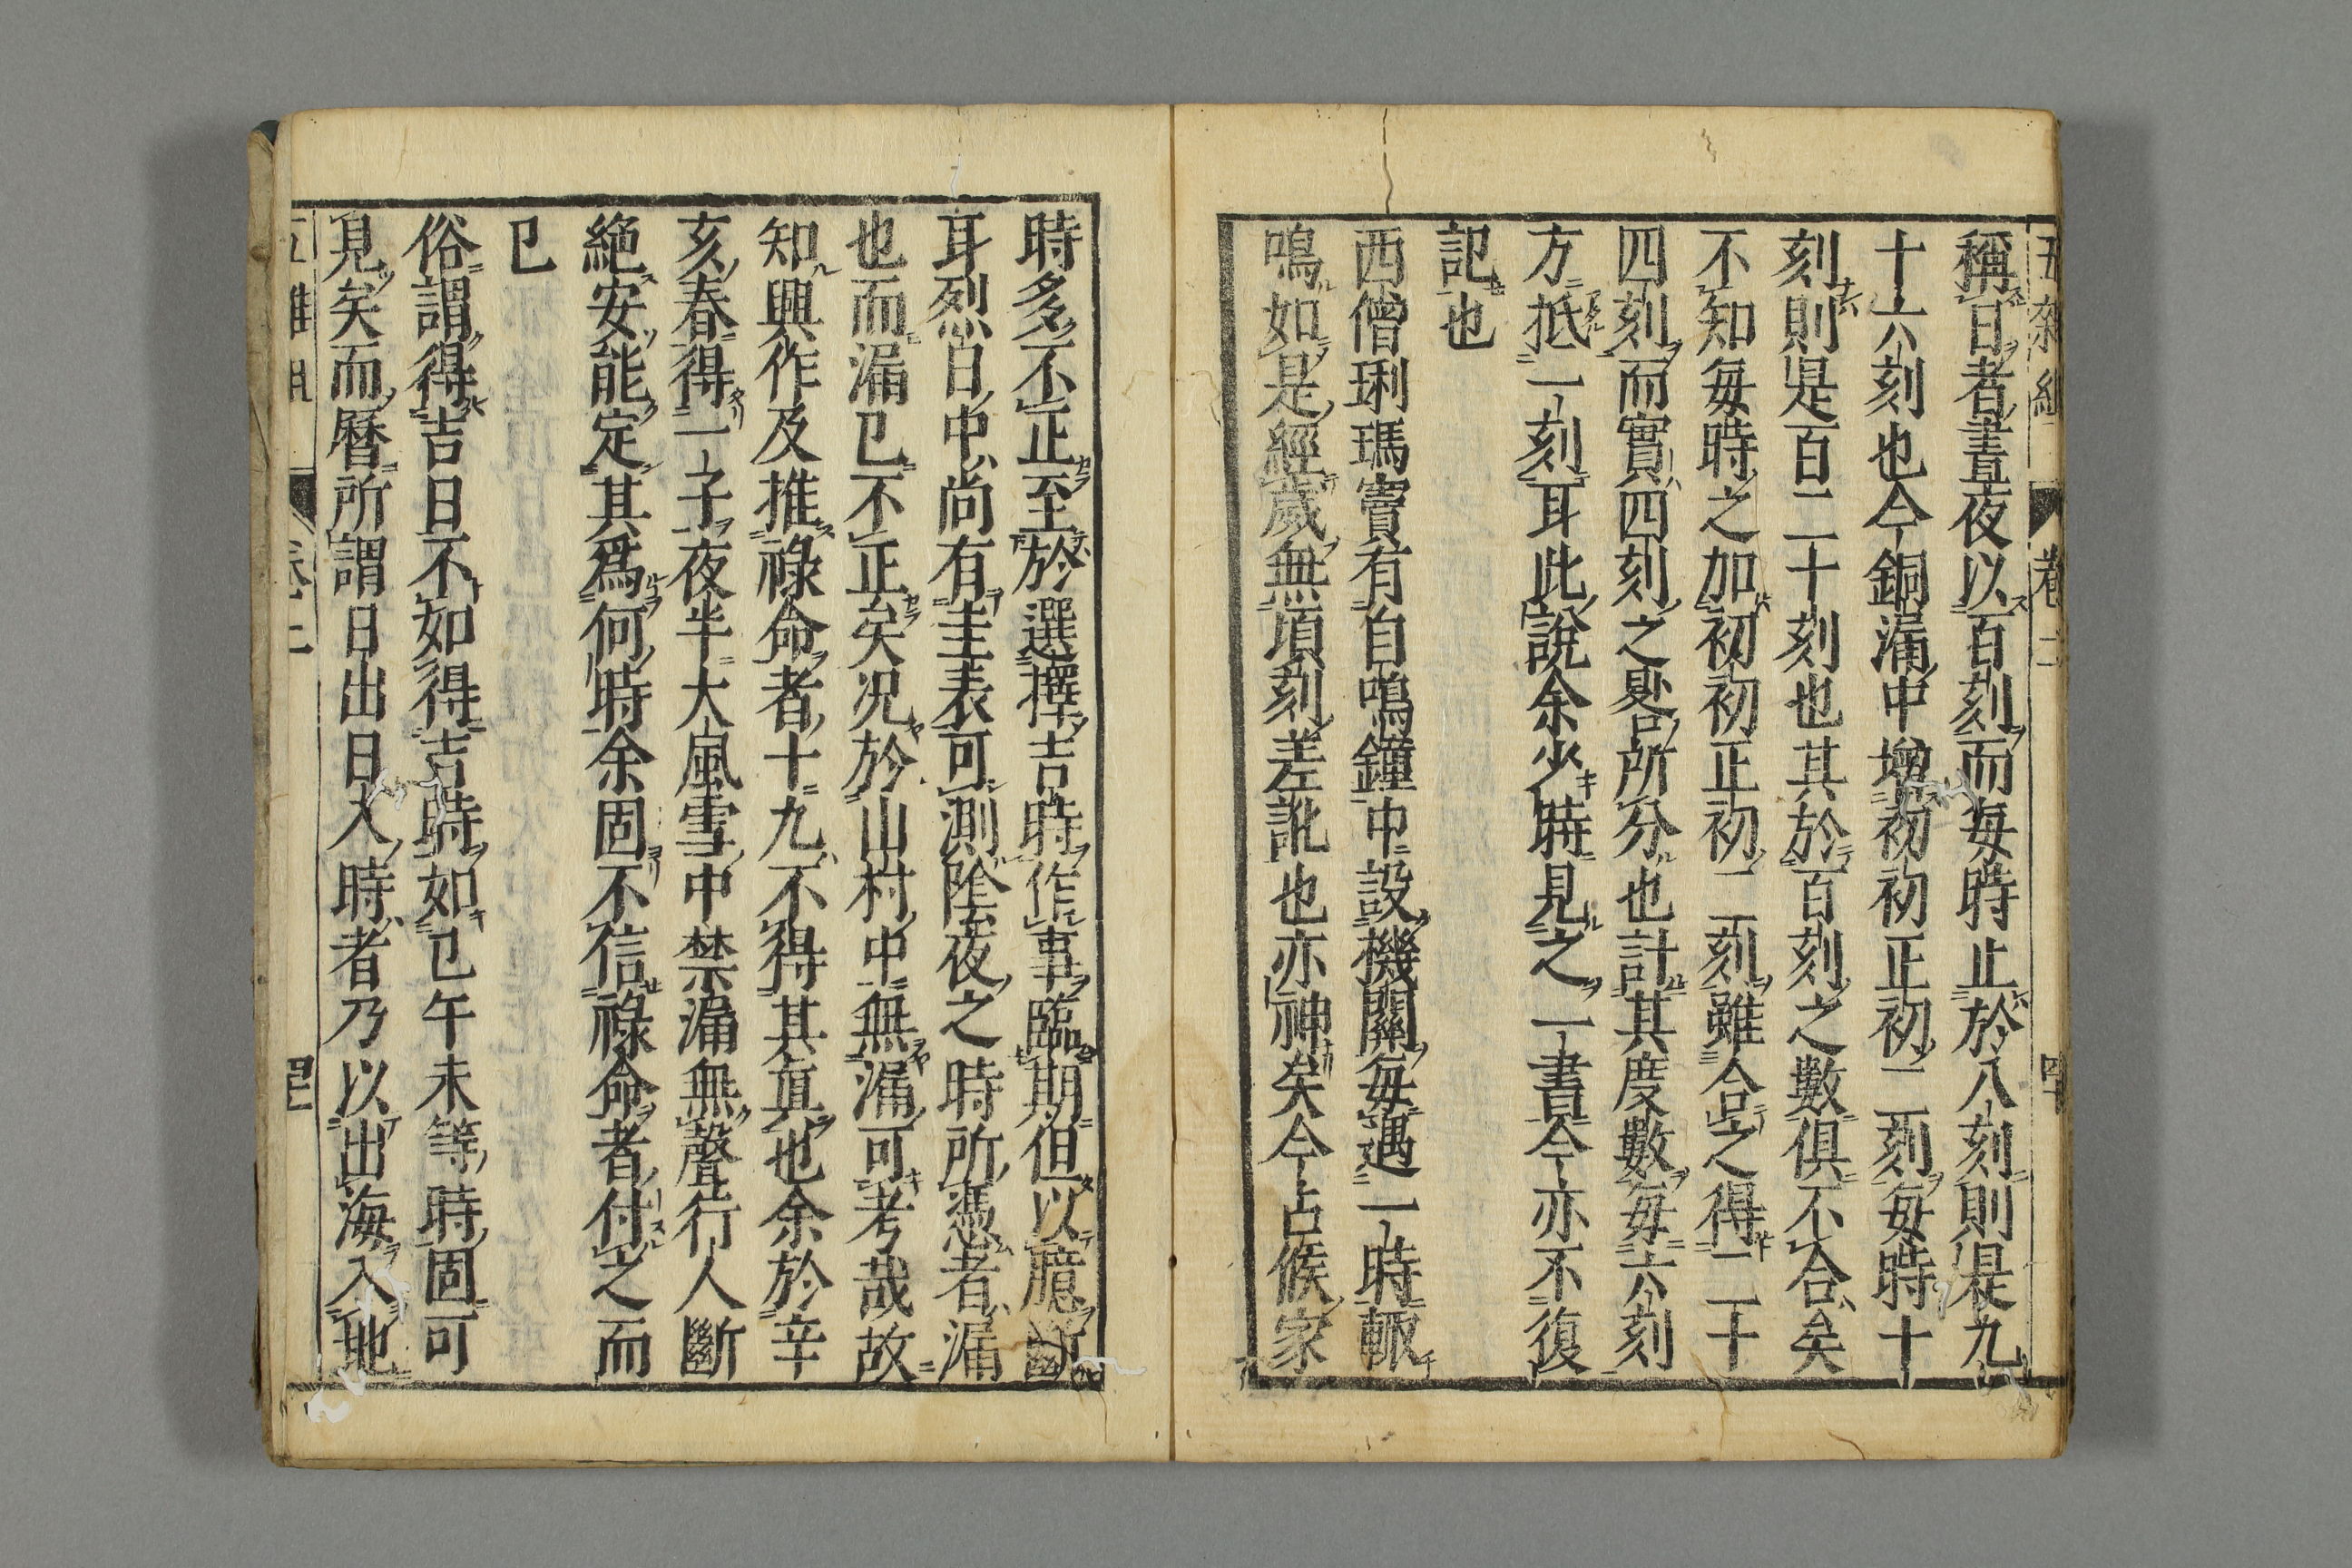 五雜組 卷二
稱日者晝夜以百刻而每時止於八刻則是九
十六刻也今銅漏中增初初正初二刻每時十
刻則是百二十刻也其於百刻之數俱不合矣
不知每時之加初初正初二刻雖合之得二十
四刻而實四刻之晷所分也計其度數每六刻
方抵一刻耳此說余少時見之一書今亦不復
記也
西僧琍瑪竇有自鳴鐘中設機關每遇一時輙
鳴如是經歲無頃刻差訛也亦神矣今占候家
時多不正至於選擇吉時作事臨期但以臆斷
耳烈日中尚有圭表可測陰夜之時所憑者漏
也而漏已不正矣况於山村中無漏可考哉故
知興作及推祿命者十九不得其眞也余於辛
亥春得一子夜半大風雪中禁漏無聲行人斷
絕安能定其爲何時余固不信祿命者付之而
已
俗謂得吉日不如得吉時如巳午未等時固可
見矣而曆所謂日出日入時者乃以出海入地